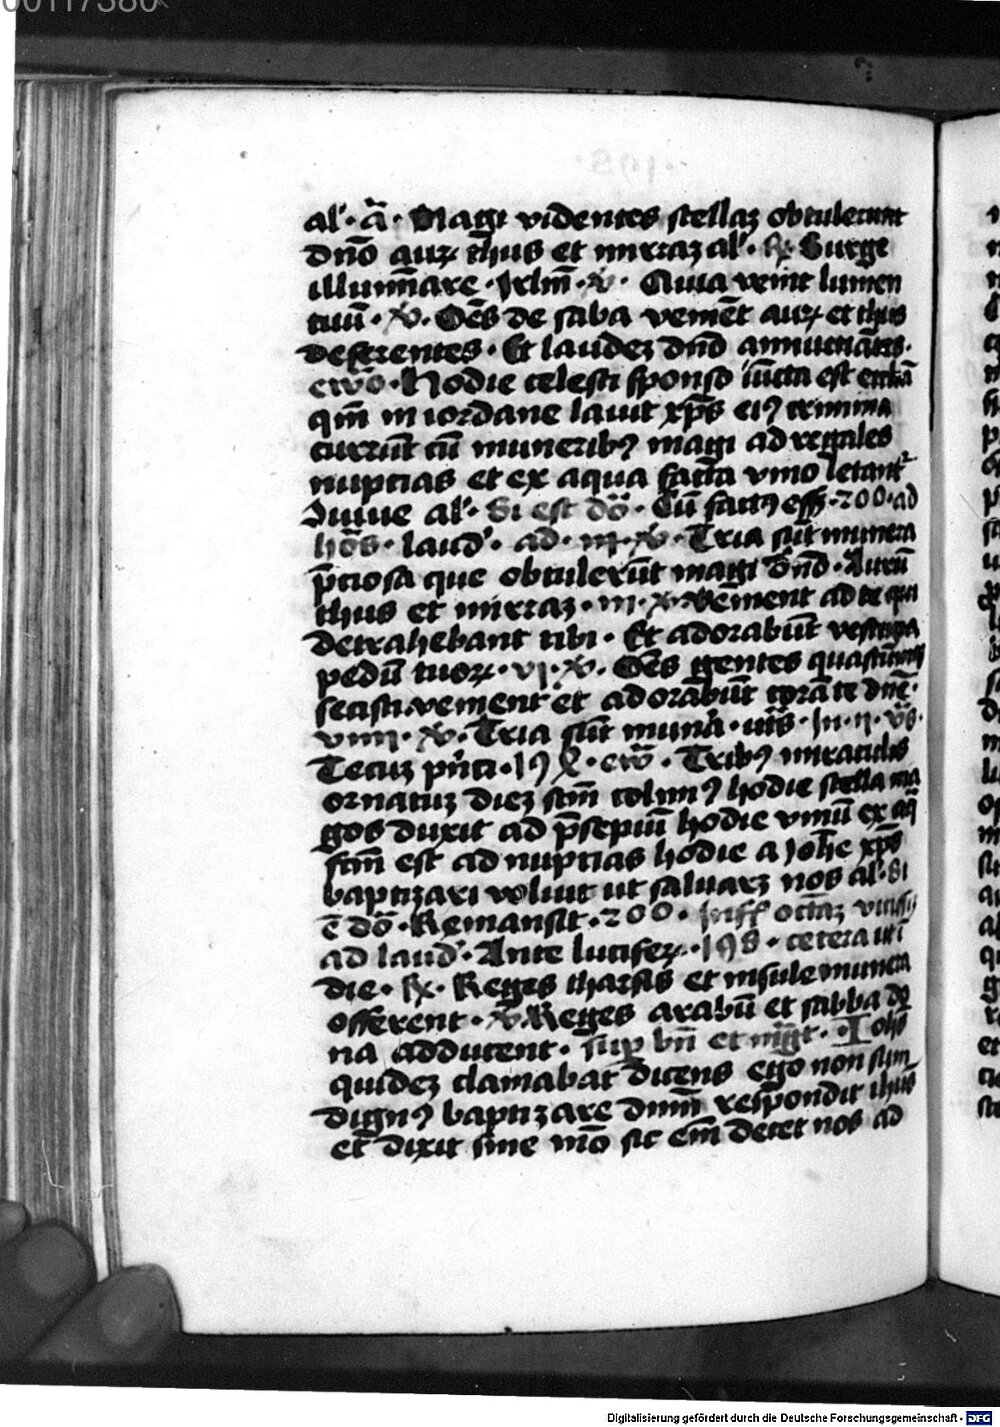 00117380
al'. ā. Magi videntes stellaꝫ obtulerunt
dn̄o auꝝ thus et mirraꝫ al'. ℟. Surge
illumīare. Irlm̄. ꝟ. Quia venit lumen
tuū. ꝟ. Oēs de saba venient auꝝ et thus
deferentes. Et laudeꝫ dn̄o annuctiātes.
ewō. Hodie celesti sponso iūcta est
qm̄ in iordane lauit xp̄s eiꝰ crimina
currūt cū muneribꝰ magi ad regales
nuptias et ex aqua facta vino letant᷑
al'. Si est dō. Cū factꝰ ess. 200. ad
hōs. laud'. ad. m. ꝟ. Tria sūt munera
p̄ciosa que obtulerūt magi dn̄o. Aurū
thus et mirraꝫ. ꝟ. venient ad te qui
detrahebant tibi. Et adorabūt vestigia
pedū tuoꝝ. vi. ꝟ. Oēs gentes quascūqꝫ
fecisti venient et adorabūt corā te dn̄e.
viiii. ꝟ. Tria sūt mun̄a. In. ii. v̄s.
Tecuꝫ pn̄ci. ewō. Tribꝰ miraculis
ornatuꝫ dieꝫ scm̄ colimꝰ hodie stella ma
gos duxit ad p̄sepiū hodie vinū ex aq̄
fcm̄ est ad nuptias hodie a Ioh̄e xp̄s
baptizari voluit ut saluarꝫ nos al'. Si
ē dō. Remansit. 200.
ad laud'. Ante lucifeꝝ. 198. cetera uti
die. ℟. Reges tharsis et insule munera
offerent. ꝟ. Reges arabū et sabba do
na adducent. sup bn̄ et mḡt. Iohs
quideꝫ clamabat dicens ego non sum
dignꝰ baptizare dnm̄ respondit ihus
et dixit sine mō sic em̄ decet nos ad
Digitalisierung gefördert durch die Deutsche Forschungsgemeinschaft - DFG